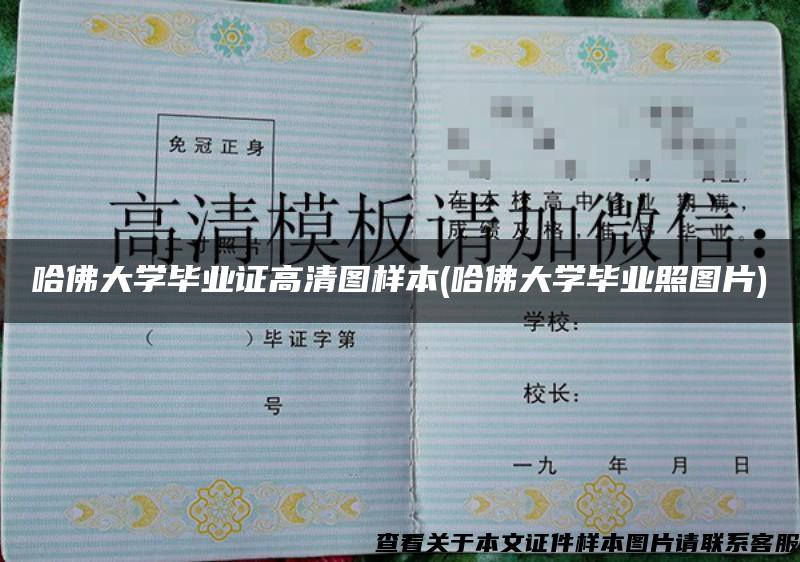 免冠正身
二寸照片
（ ）毕证字第
号
日至，
在本校高中修业期满，
成绩及格，准予毕业。
学校：
校长：
一九 年 月 日
高清模板请加微信：
哈佛大学毕业证高清图样本(哈佛大学毕业照图片)
查看关于本文证件样本图片请联系客服